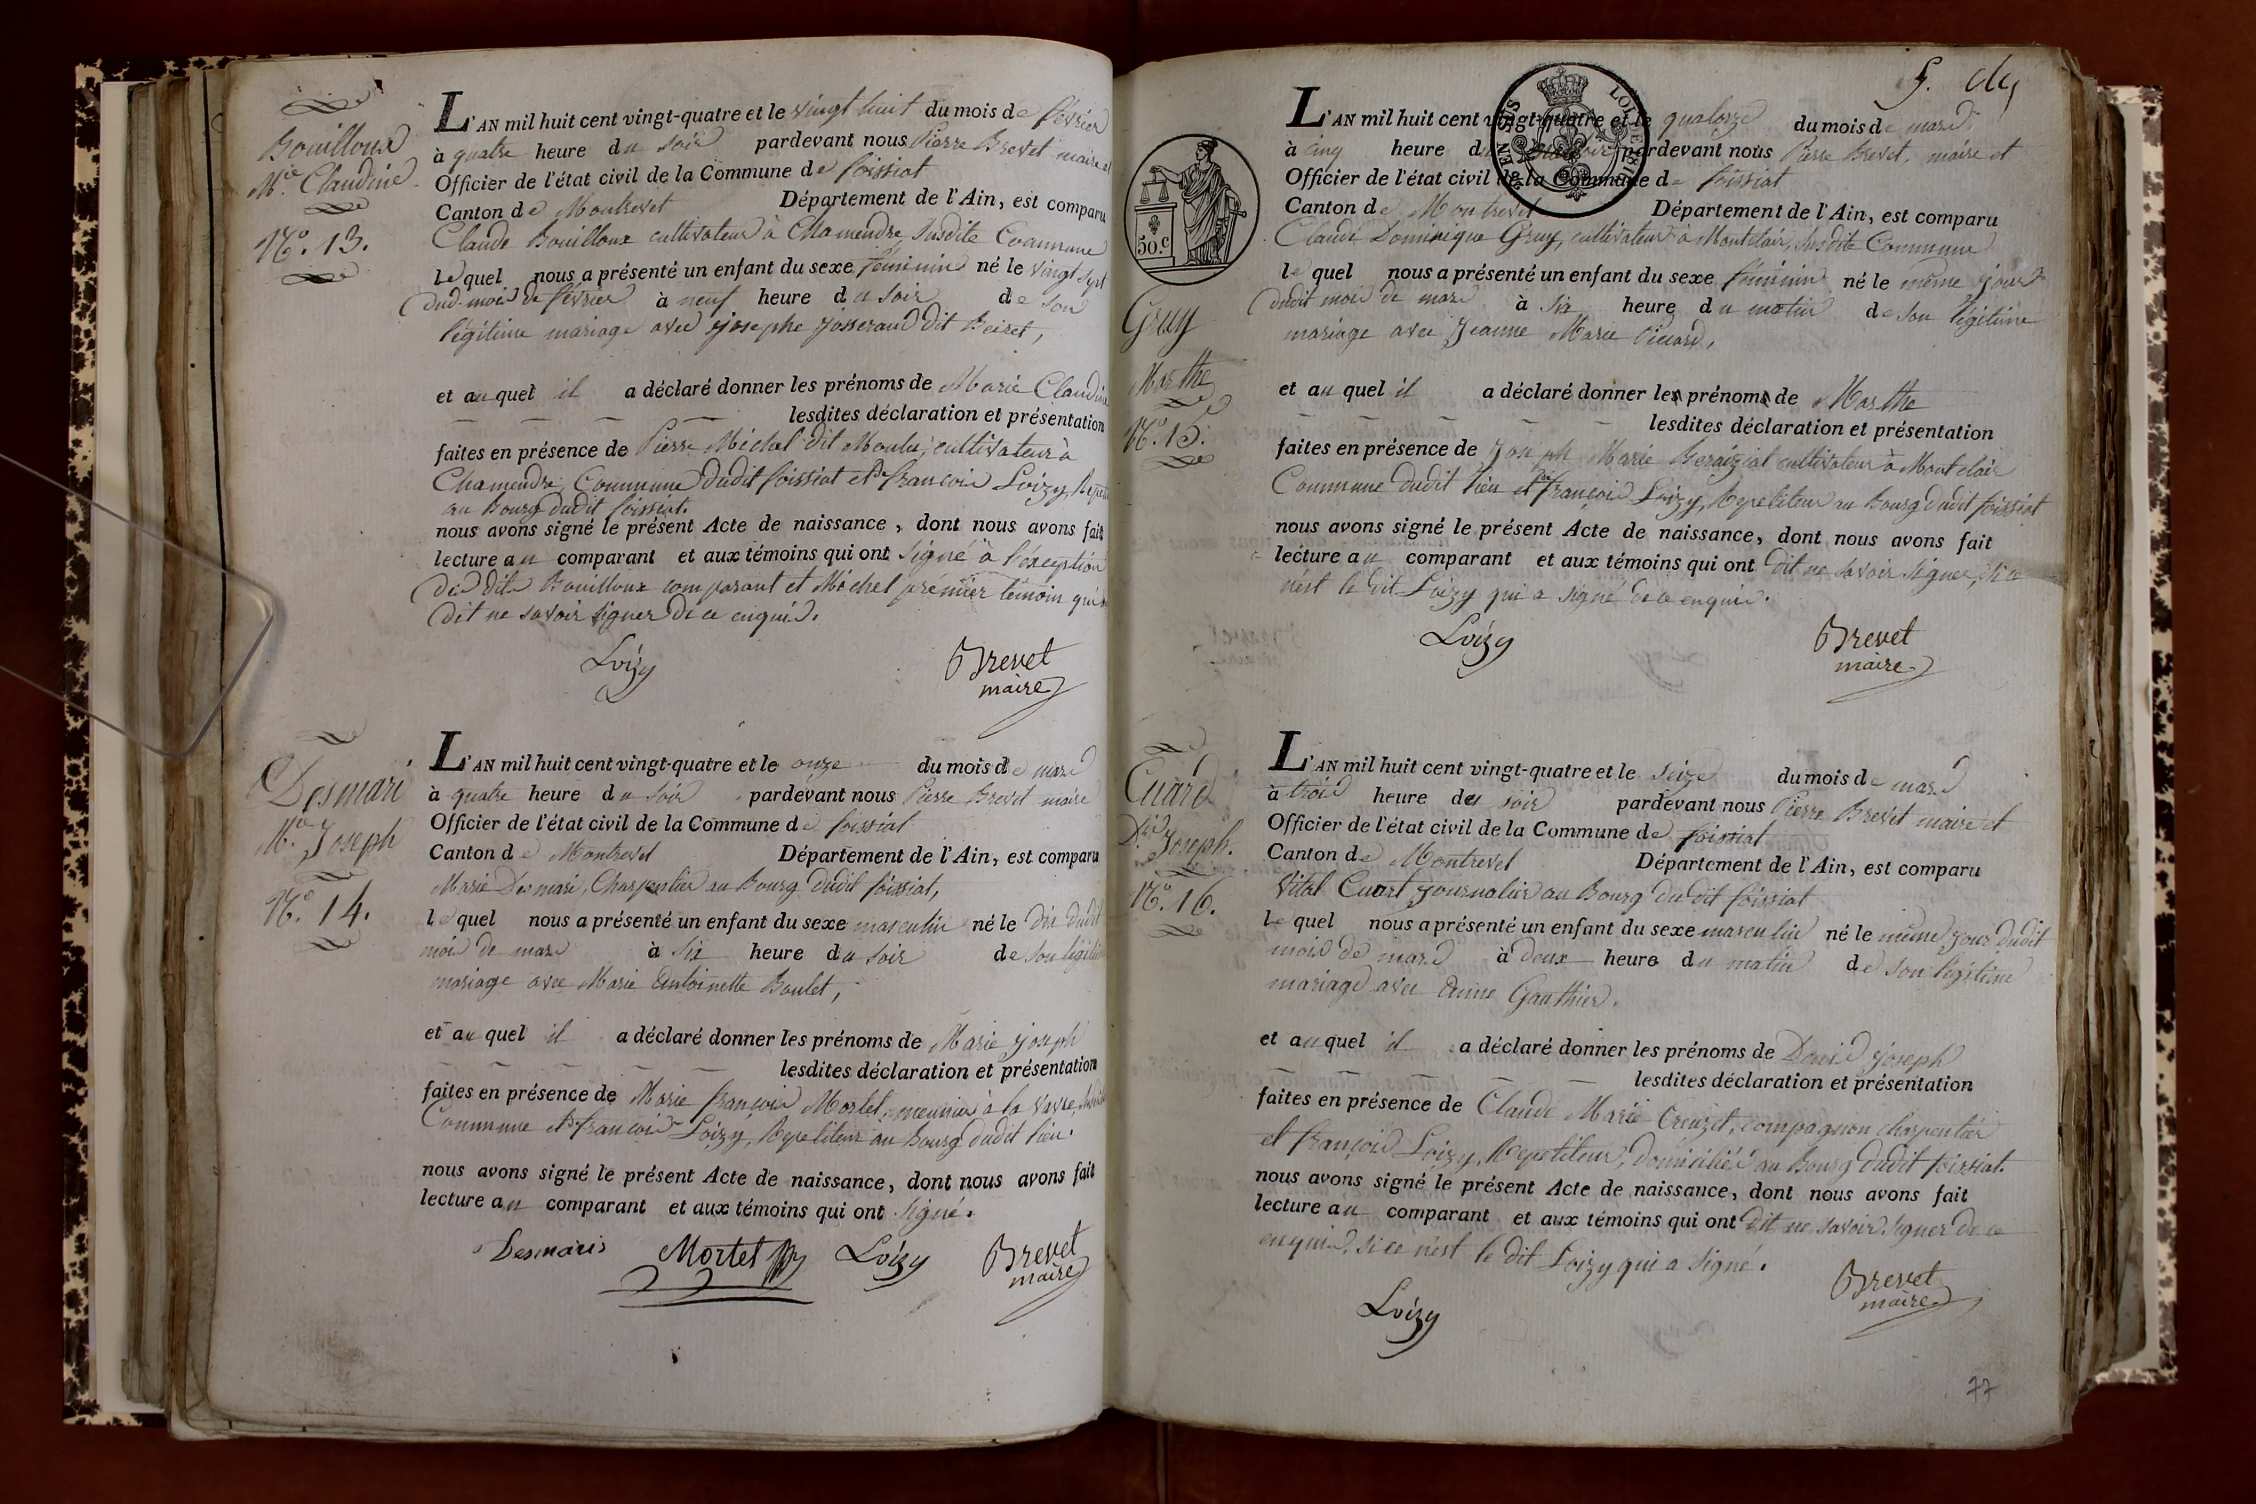 Bouilloux
Mie Claudine
N.o 13.
L'AN mil huit cent vingt-quatre et le vingt huit du mois de février
à quatre heure du soir pardevant nous Pierre Brevet maire et
Officier de l'état civil de la Commune de foissiat
Canton de Montrevet Département de l'Ain, est comparu
Claude Bouilloux cultivateur à Chamendre susdite Commune
lequel nous a présenté un enfant du sexe féminin né le vingt sept
dud. mois de février à neuf heure du soir de son
légitime mariage avec josephe josserand dit Beiret,
et auquel il a déclaré donner les prénoms de Marie Claudine
lesdites déclaration et présentation
faites en présence de Pierre Michel dit Moulu, cultivateur à
Chamendre Commune dudit foissiat et de françois Loizy,
au Bourg dudit foissiat.
nous avons signé le présent Acte de naissance, dont nous avons fait
lecture au comparant et aux témoins qui ont signé à l'éxeption
des dits Bouilloux comparant et Michel prémier témoin qui
dit ne savoir signer de ce enquis.
Loizy Brevet
maire
Desmari
Mie Joseph
N.o 14.
L'AN mil huit cent vingt-quatre et le onze du mois de mars
à quatre heure du soir pardevant nous Pierre Brevet maire
Officier de l'état civil de la Commune de foissiat
Canton de Montrevel Département de l'Ain, est comparu
Marie Desmari, Charpentier au Bourg dudit foissiat,
lequel nous a présenté un enfant du sexe masculin né le dix dudit
mois de mars à six heure du soir de son légitime
mariage avec Marie Antoinette Boulet,
et auquel il a déclaré donner les prénoms de Marie joseph
lesdites déclaration et présentation
faites en présence de Marie françois Mortel, meunier à la Vavre,
Commune et de françois Loizy, Repetiteur au Bourg dudit lieu.
nous avons signé le présent Acte de naissance, dont nous avons fait
lecture au comparant et aux témoins qui ont signé.
Desmaris Mortel Loizy Brevet
maire
5.
EN SUS
LOI DE 1816
50.c
Gruy
Marthe
N.o 15.
L'AN mil huit cent vingt-quatre et le quatorze du mois de mars
à cinq heure du soir pardevant nous Pierre Brevet, maire et
Officier de l'état civil de la Commune de foissiat
Canton de Montrevel Département de l'Ain, est comparu
Claude Dominique Gruy, cultivateur à Montclair, susdite Commune
lequel nous a présenté un enfant du sexe féminin né le même jour
dudit mois de mars à six heure du matin de son légitime
mariage avec Jeanne Marie Picard,
et auquel il a déclaré donner les prénoms de Marthe
lesdites déclaration et présentation
faites en présence de Joseph Marie Beraiziat cultivateur à Montclair
Commune dudit lieu et de françois Loizy, Repetiteur au Bourg dudit foissiat
nous avons signé le présent Acte de naissance, dont nous avons fait
lecture au comparant et aux témoins qui ont dit ne savoir signer, si ce
n'est le dit Loizy qui a signé de ce enquis.
Loizy Brevet
maire
Cuard
Dis Joseph.
N.o 16.
L'AN mil huit cent vingt-quatre et le seize du mois de mars
à trois heure du soir pardevant nous Pierre Brevet maire et
Officier de l'état civil de la Commune de foissiat
Canton de Montrevel Département de l'Ain, est comparu
Vital Cuart journalier au Bourg du dit foissiat
lequel nous a présenté un enfant du sexe masculin né le même jour dudit
mois de mars à deux heure du matin de son légitime
mariage avec Anne Gauthier.
et auquel il a déclaré donner les prénoms de Denis joseph
lesdites déclaration et présentation
faites en présence de Claude Marie Creuzet, compagnon charpentier
et françois Loizy, Repetiteur, domiciliés au Bourg dudit foissiat.
nous avons signé le présent Acte de naissance, dont nous avons fait
lecture au comparant et aux témoins qui ont dit ne savoir signer de ce
enquis, si ce n'est le dit Loizy qui a signé.
Loizy Brevet
maire
77